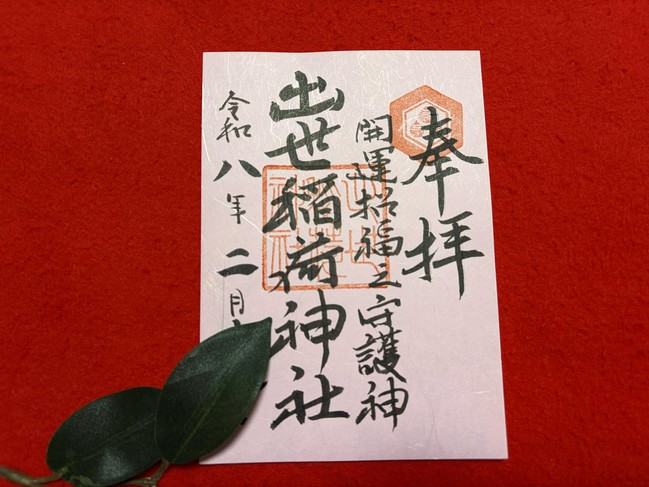 奉拝
開運招福之守護神
出世稲荷神社
令和八年二月